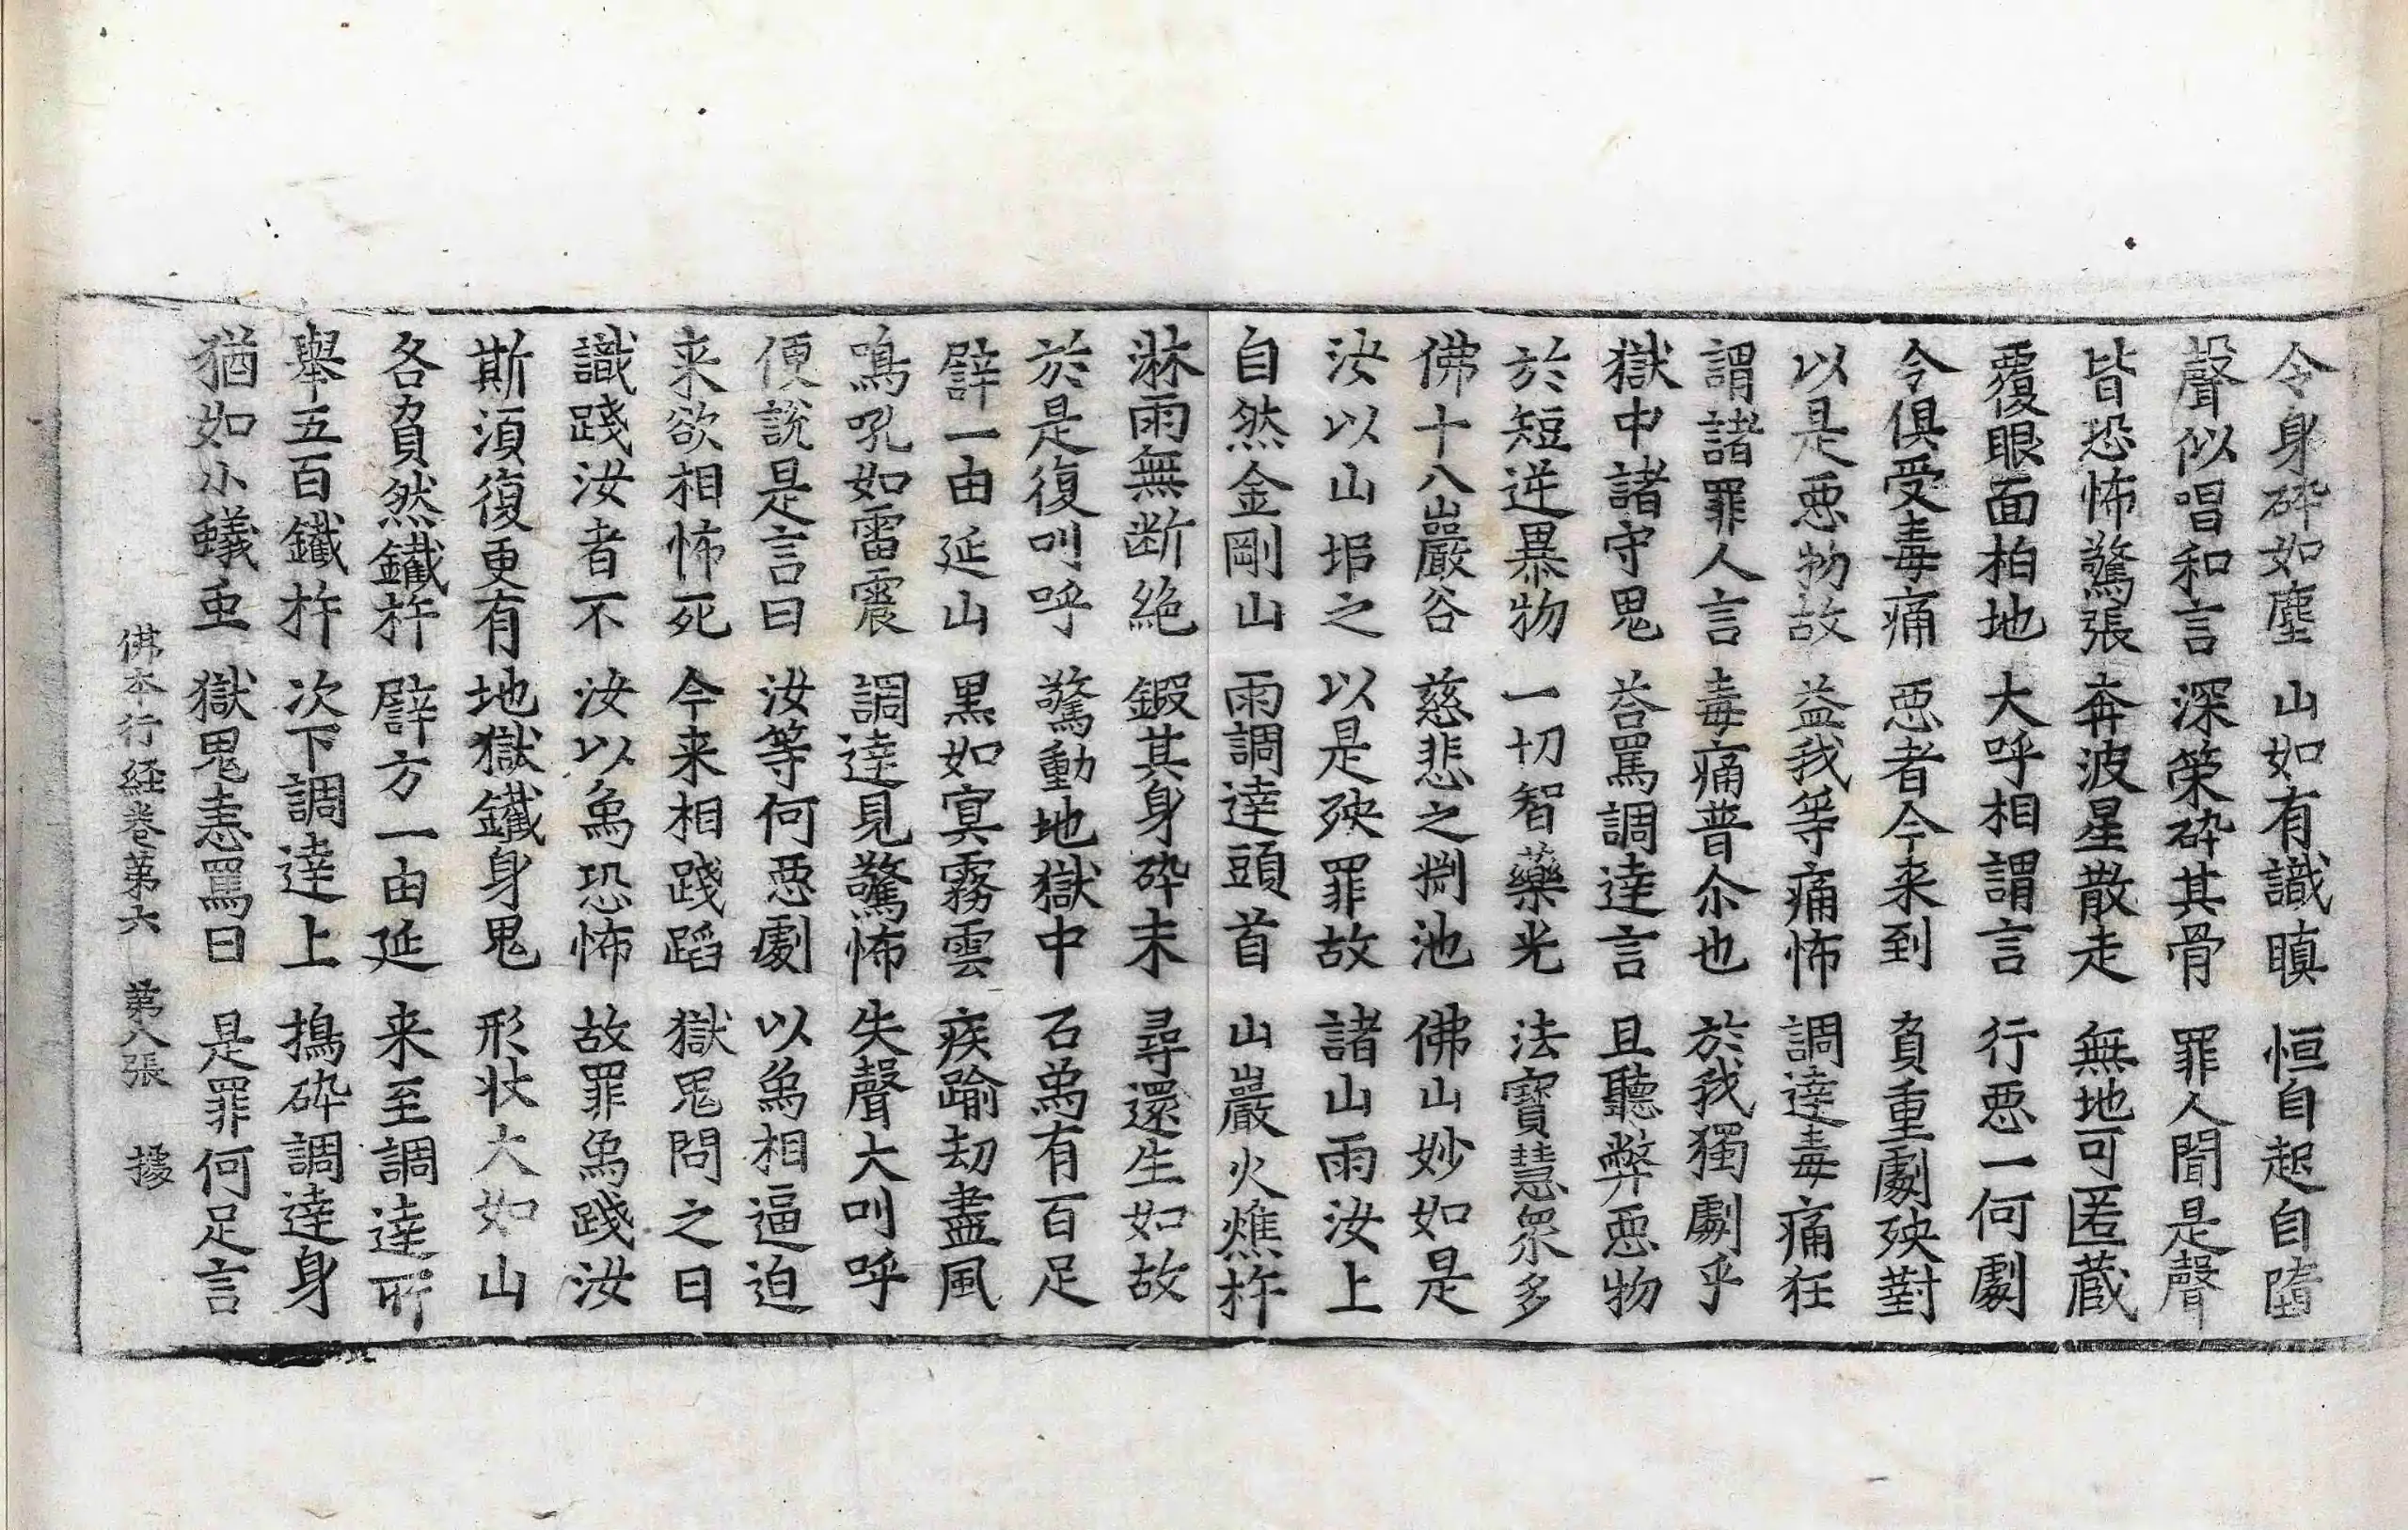 令身碎如塵 山如有識瞋 恒自起自墮
聲似唱和言 深榮碎其骨 罪人聞是聲
皆恐怖驚張 奔波星散走 無地可匿蔵
覆眼面柏地 大呼相謂言 行惡一何劇
令俱受毒痛 惡者今来到 負重劇殃對
以是惡物故 益我等痛怖 調達毒痛狂
謂諸罪人言 毒痛普尒也 於我獨劇乎
獄中諸守鬼 荅罵調達言 且聽弊惡物
於短逆暴物 一切智藥光 法寶慧眾多
佛十八巖谷 慈悲之渕池 佛山妙如是
汝以山埳之 以是殃罪故 諸山雨汝上
自然金剛山 雨調達頭首 山巖火燋杵
淋雨無断絶 鍜其身碎末 尋還生如故
於是復叫呼 驚動地獄中 石爲有百足
辟一由延山 黒如冥霧雲 疾踰劫盡風
鳴吼如雷震 調達見驚怖 失聲大叫呼
便説是言曰 汝等何惡劇 以爲相逼迫
来欲相怖死 今来相踐蹈 獄鬼問之曰
識踐汝者不 汝以爲恐怖 故罪爲踐汝
斯須復更有 地獄鐵身鬼 形状大如山
各負然鐵杵 辟方一由延 来至調達所
舉五百鐵杵 次下調達上 搗碎調達身
猶如小蟻虫 獄鬼恚罵曰 是罪何足言
佛本行経巻第六 第八張 據